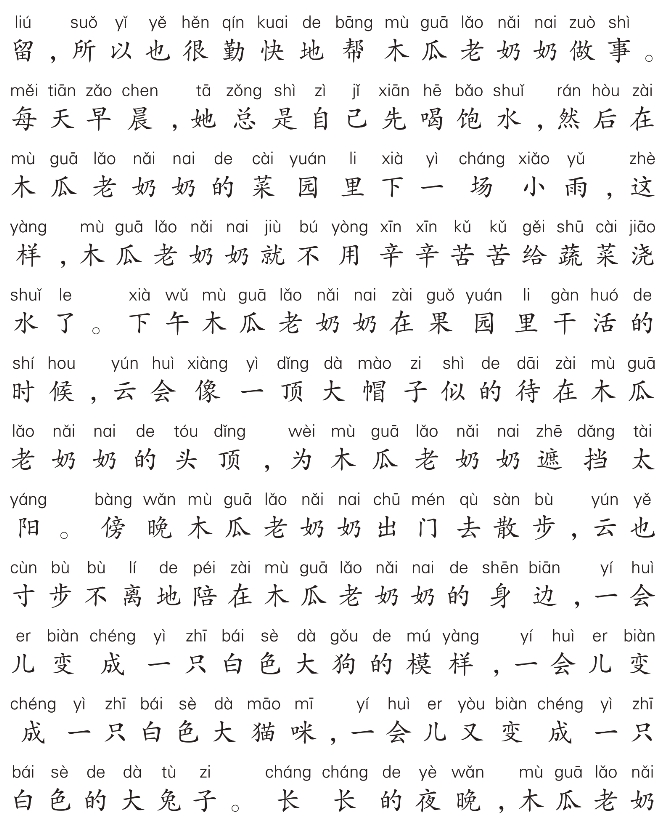 liú suǒ yǐ yě hěn qín kuai de bāng mù guā lǎo nǎi nai zuò shì
留，所以也很勤快地帮木瓜老奶奶做事。
měi tiān zǎo chen tā zǒng shì zì jǐ xiān hē bǎo shuǐ rán hòu zài
每天早晨，她总是自己先喝饱水，然后在
mù guā lǎo nǎi nai de cài yuán li xià yì cháng xiǎo yǔ zhè
木瓜老奶奶的菜园里下一场小雨，这
yàng mù guā lǎo nǎi nai jiù bú yòng xīn xīn kǔ kǔ gěi shū cài jiāo
样，木瓜老奶奶就不用辛辛苦苦给蔬菜浇
shuǐ le xià wǔ mù guā lǎo nǎi nai zài guǒ yuán li gàn huó de
水了。下午木瓜老奶奶在果园里干活的
shí hou yún huì xiàng yì dǐng dà mào zi shì de dāi zài mù guā
时候，云会像一顶大帽子似的待在木瓜
lǎo nǎi nai de tóu dǐng wèi mù guā lǎo nǎi nai zhē dǎng tài
老奶奶的头顶，为木瓜老奶奶遮挡太
yáng bàng wǎn mù guā lǎo nǎi nai chū mén qù sàn bù yún yě
阳。傍晚木瓜老奶奶出门去散步，云也
cùn bù bù lí de péi zài mù guā lǎo nǎi nai de shēn biān yí huì
寸步不离地陪在木瓜老奶奶的身边，一会
er biàn chéng yì zhī bái sè dà gǒu de mú yàng yí huì er biàn
儿变成一只白色大狗的模样，一会儿变
chéng yì zhī bái sè dà māo mī yí huì er yòu biàn chéng yì zhī
成一只白色大猫咪，一会儿又变成一只
bái sè de dà tù zi cháng cháng de yè wǎn mù guā lǎo nǎi
白色的大兔子。长长的夜晚，木瓜老奶